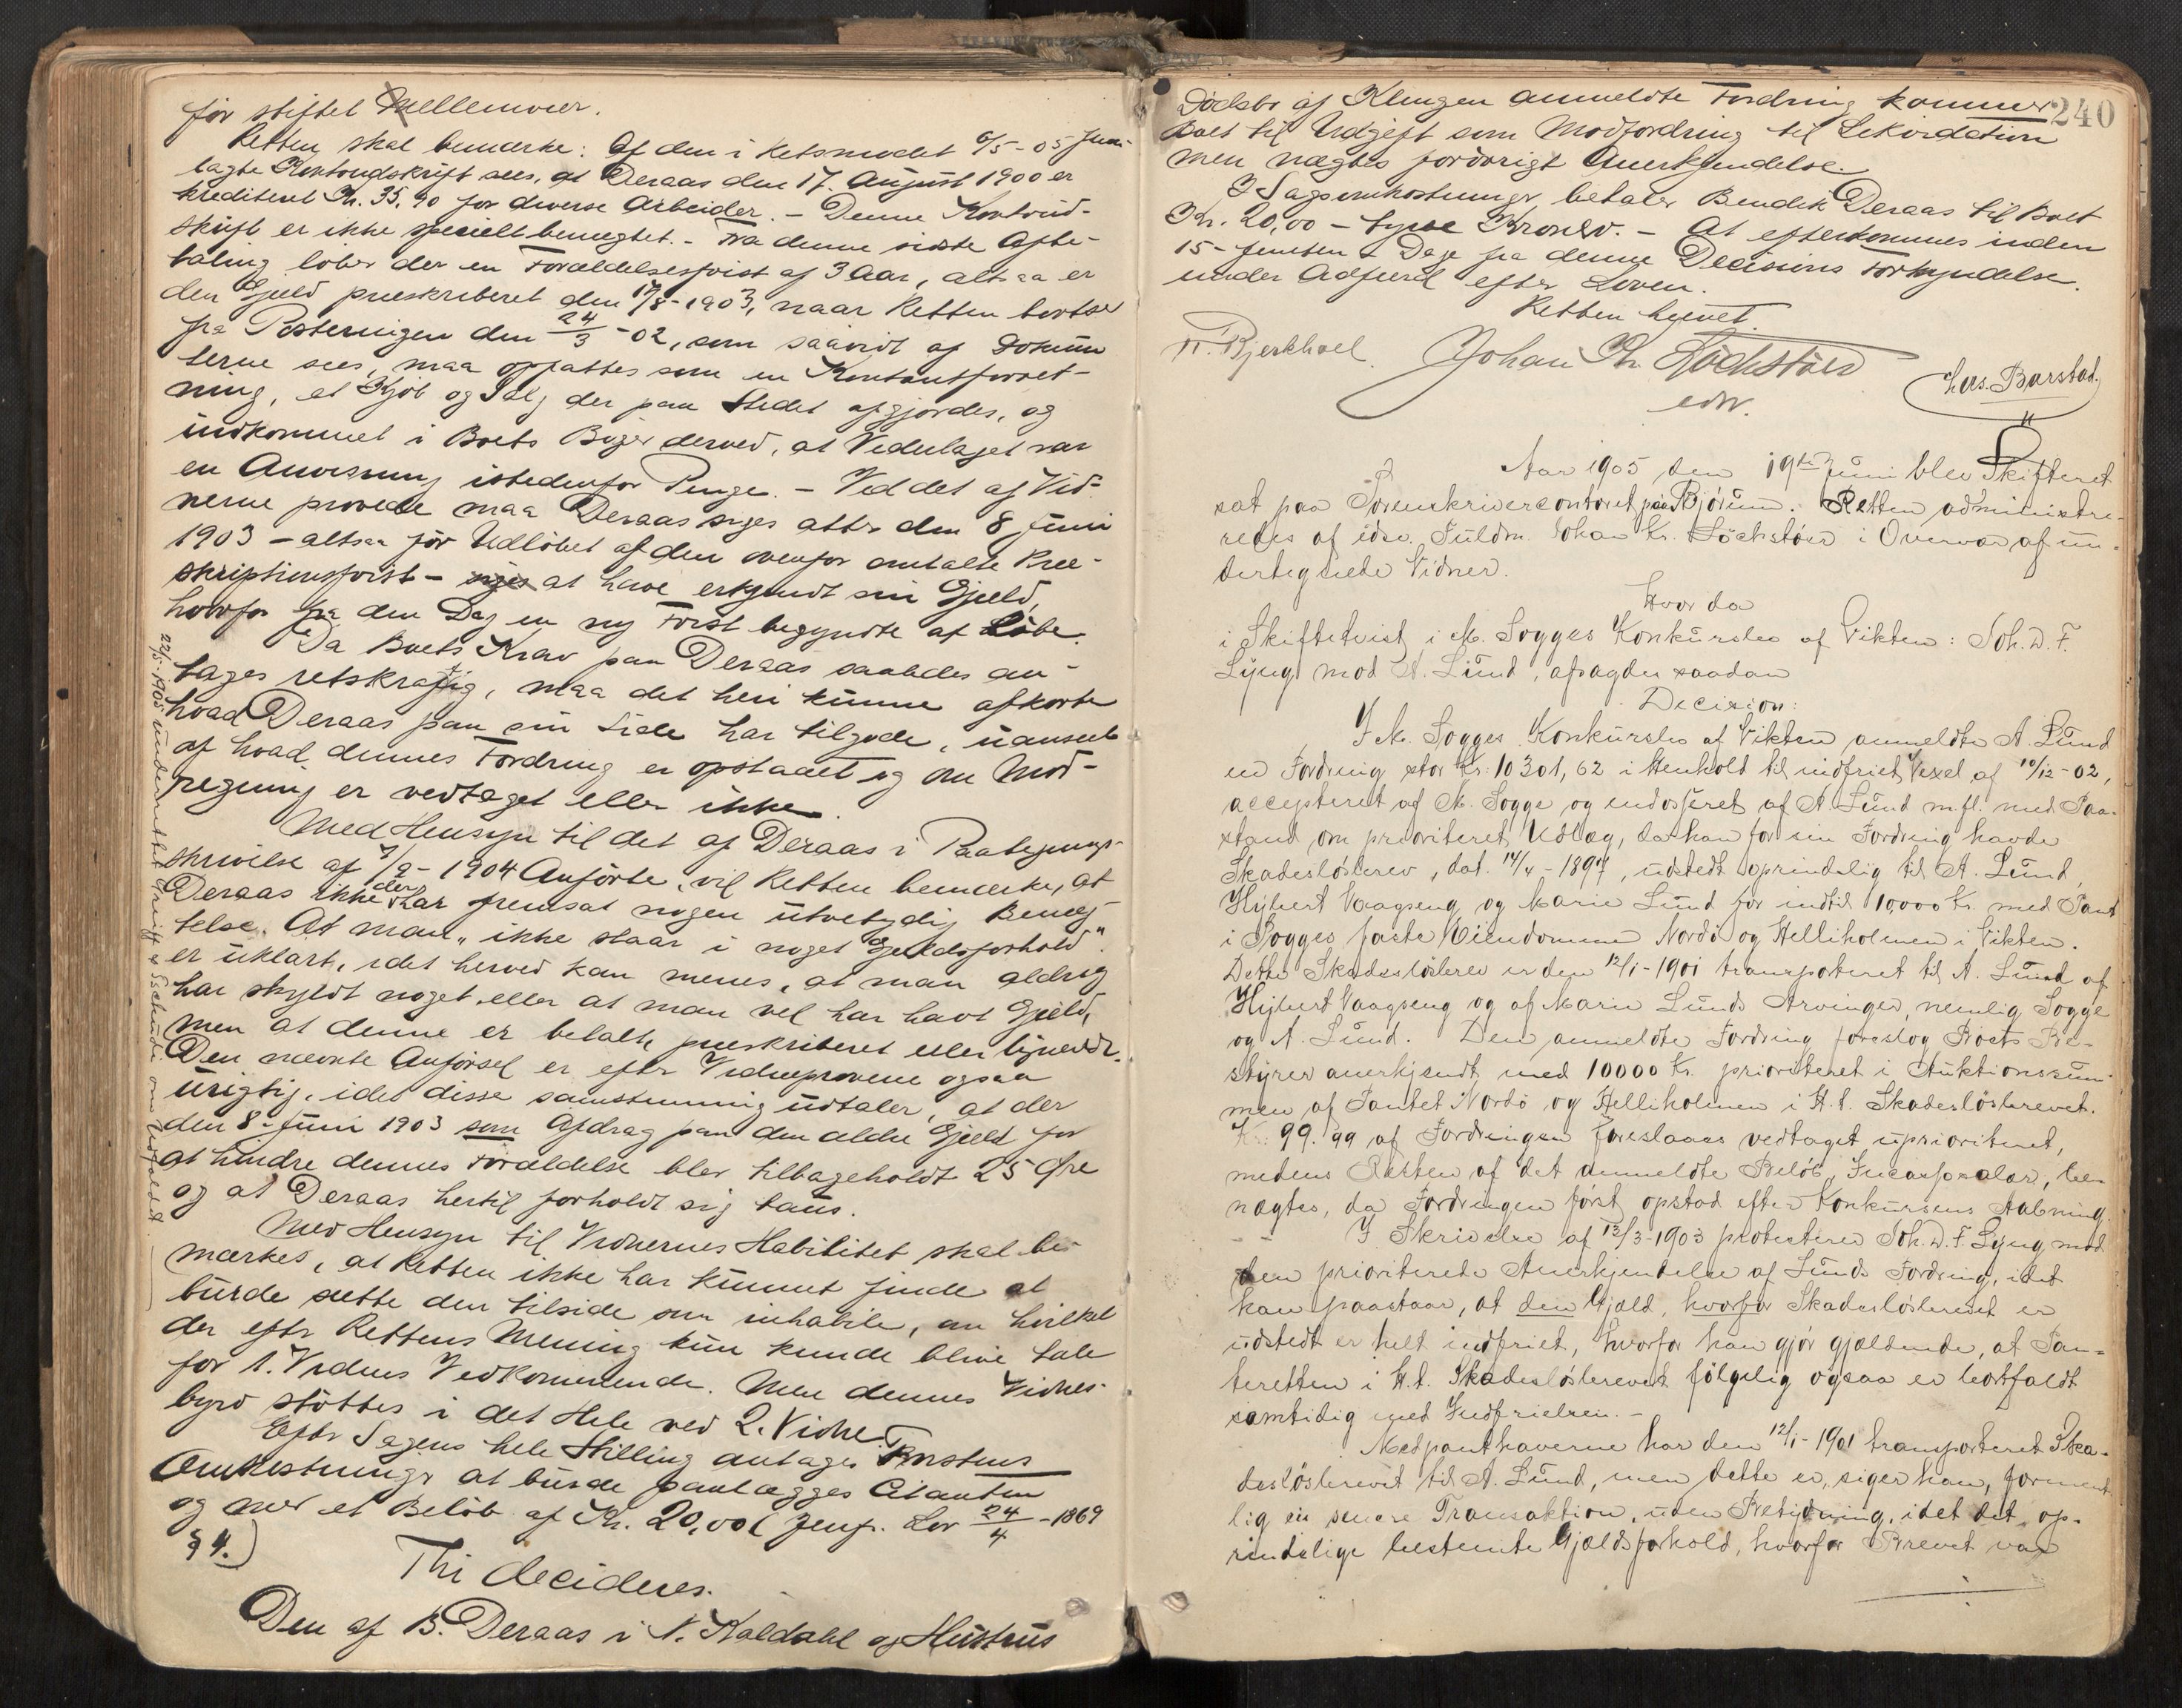 før stiftet Mellemvær.
Retten skal bemærke: Af den i Retsmødet 6/5-05 frem-
lagte Kontoudskrift sees, at Deraas den 17. August 1900 er
krediteret Kr. 35,90 for diverse Arbeider. - Denne Kontoud-
skrift er ikke specielt benægtet. - Fra denne sidste Afbe-
taling løber der en Forældelsesfrist af 3 Aar, altsaa er
den Gjæld præskriberet den 17/8-1903, naar Retten bortser
fra Posteringen den 24/3-02, som saavidt af Dokumen
terne sees, maa opfattes som en Kontantforret-
ning, et Kjøb og Salg der paa Stedet afgjordes, og
indkommet i Boets Bøger derved, at Vederlaget var
en Anvisning istedenfor Penge. - Ved det af Vid-
nerne provede maa Deraas siges atter den 8 Juni
1903 - altsaa før Udløbet af den ovenfor omtalte Præ-
skriptionsfrist - siges at have erkjendt sin Gjæld,
hvorfor fra den Dag en ny Frist begyndte at løbe.
Da Boets Krav paa Deraas saaledes an-
tages retskraftig, maa det heri kunne afkorte
hvad Deraas paa sin Side har tilgode, uanseet
af hvad dennes Fordring er opstaaet og om Mod-
regning er vedtaget eller ikke.
Med Hensyn til det af Deraas i Paategnings-
skrivelse af 7/2-1904 Anførte, vil Retten bemærke, at
Deraas ikke der har fremsat nogen utvetydig Benæg
telse. At man "ikke staar i noget Gjældsforhold"
er uklart, idet herved kan menes, at man aldrig
har skyldt noget, eller at man vel har havt Gjæld,
men at denne er betalt, præskriberet eller lignende.
Den nævnte Anførsel er efter Vidneprovene ogsaa
urigtig, idet disse samstemmig udtaler, at der
den 8-Juni 1903 som Afdrag paa den ældre Gjæld for
at hindre dennes Forældelse blev tilbageholdt 25 Øre
og at Deraas hertil forholdt sig taus.
Med Hensyn til Vidnernes Habilitet skal be-
mærkes, at Retten ikke har kunnet finde at
burde sætte dem tilside som inhabile, om hvilket
der efter Rettens Mening kun kunde blive tale
for 1. Vidnes Vedkommende. Men dennes Vidnes-
byrd støttes i det Hele ved 2. Vidne.
Efter Sagens hele Stilling antages
Omkostninger at burde paalægges Citanten
og med et Beløb af Kr. 20,00 (jevnf. Lov 24/4-1869
§ 4.)
Thi decideres.
Den af B. Deraas i N. Kaldahl og Hustrus
22/5-1905 underrettet om Udfaldet.
240
Dødsbo af Klingen anmeldte Fordring kommer
Boet til Udgift som Modfordring til Likvidation
men nægtes forøvrigt Anerkjendelse.
I Sagsomkostninger betaler Bendik Deraas til Boet
Kr. 20,00 - tyve Kroner. - At efterkommes inden
15 - femten - Dage fra denne Decisions Forkyndelse
under Adfærd efter Loven.
Retten hævet.
Bjerkhoel Johan Kr. Løchstøer Lars. Barstad.
edsv.
Aar 1905 den 19de Juni blev Skifteret
sat paa Sorenskrivercontoret paa Bjørum. Retten administre-
redes af edsv. Fuldm. Johan Kr. Løchstøer i Overvær af un-
dertegnede Vidner.
Hvor da
i Skiftetvist i M. Sogges Konkursbo af Vikten: Joh. D. F.
Lyng mod A. Lund, afsagdes saadan
Decision:
I M. Sogges Konkursbo af Vikten anmeldte A. Lund
en Fordring stor Kr. 10301,62 i Henhold til indfriet Vexel af 10/12-02,
accepteret af M. Sogge og endosseret af A. Lund m.fl. med Paa-
stand om prioriteret Udlæg, da han for sin Fordring havde
Skadesløsbrev, dat. 14/4-1897, udstedt oprindelig til A. Lund,
Hijbert Vaagseng og Marie Lund for indtil 10,000 Kr. med Pant
i Sogges faste Eiendomme Nordø og Helliholmen i Vikten.
Dette Skadesløsbrev er den 12/1-1901 transporteret til A. Lund af
Hijbert Vaagseng og af Marie Lunds Arvinger, nemlig Sogge
og A. Lund. Den anmeldte Fordring foreslog Boets Be-
styrer anerkjendt med 10000 Kr. prioriteret i Auktionssum-
men af Pantet Nordø og Helliholmen i H.t. Skadesløsbrevet.
Kr. 99.99 af Fordringen foreslaaes vedtaget uprioriteret,
medens Resten af det anmeldte Beløb, Incassosalær, be-
nægtes, da Fordringen først opstod efter Konkursens Aabning.
I Skrivelse af 13/3-1903 protesterer Joh. D. F. Lyng mod
den prioriterede Anerkjendelse af Lunds Fordring, idet
han paastaar, at den Gjæld, hvorfor Skadesløsbrevet er
udstedt er helt indfriet, hvorfor han gjør gjældende, at Pan-
teretten i H.t. Skadesløsbrevet følgelig ogsaa er bortfaldt
samtidig med Indfrielsen. -
Medpanthaverne har den 12/1-1901 transporteret Ska-
desløsbrevet til A. Lund, men dette er, siger han, forment
lig en senere Transaktion, uden Betydning, idet det op-
rindelige bestemte Gjældsforhold, hvorfor Brevet var